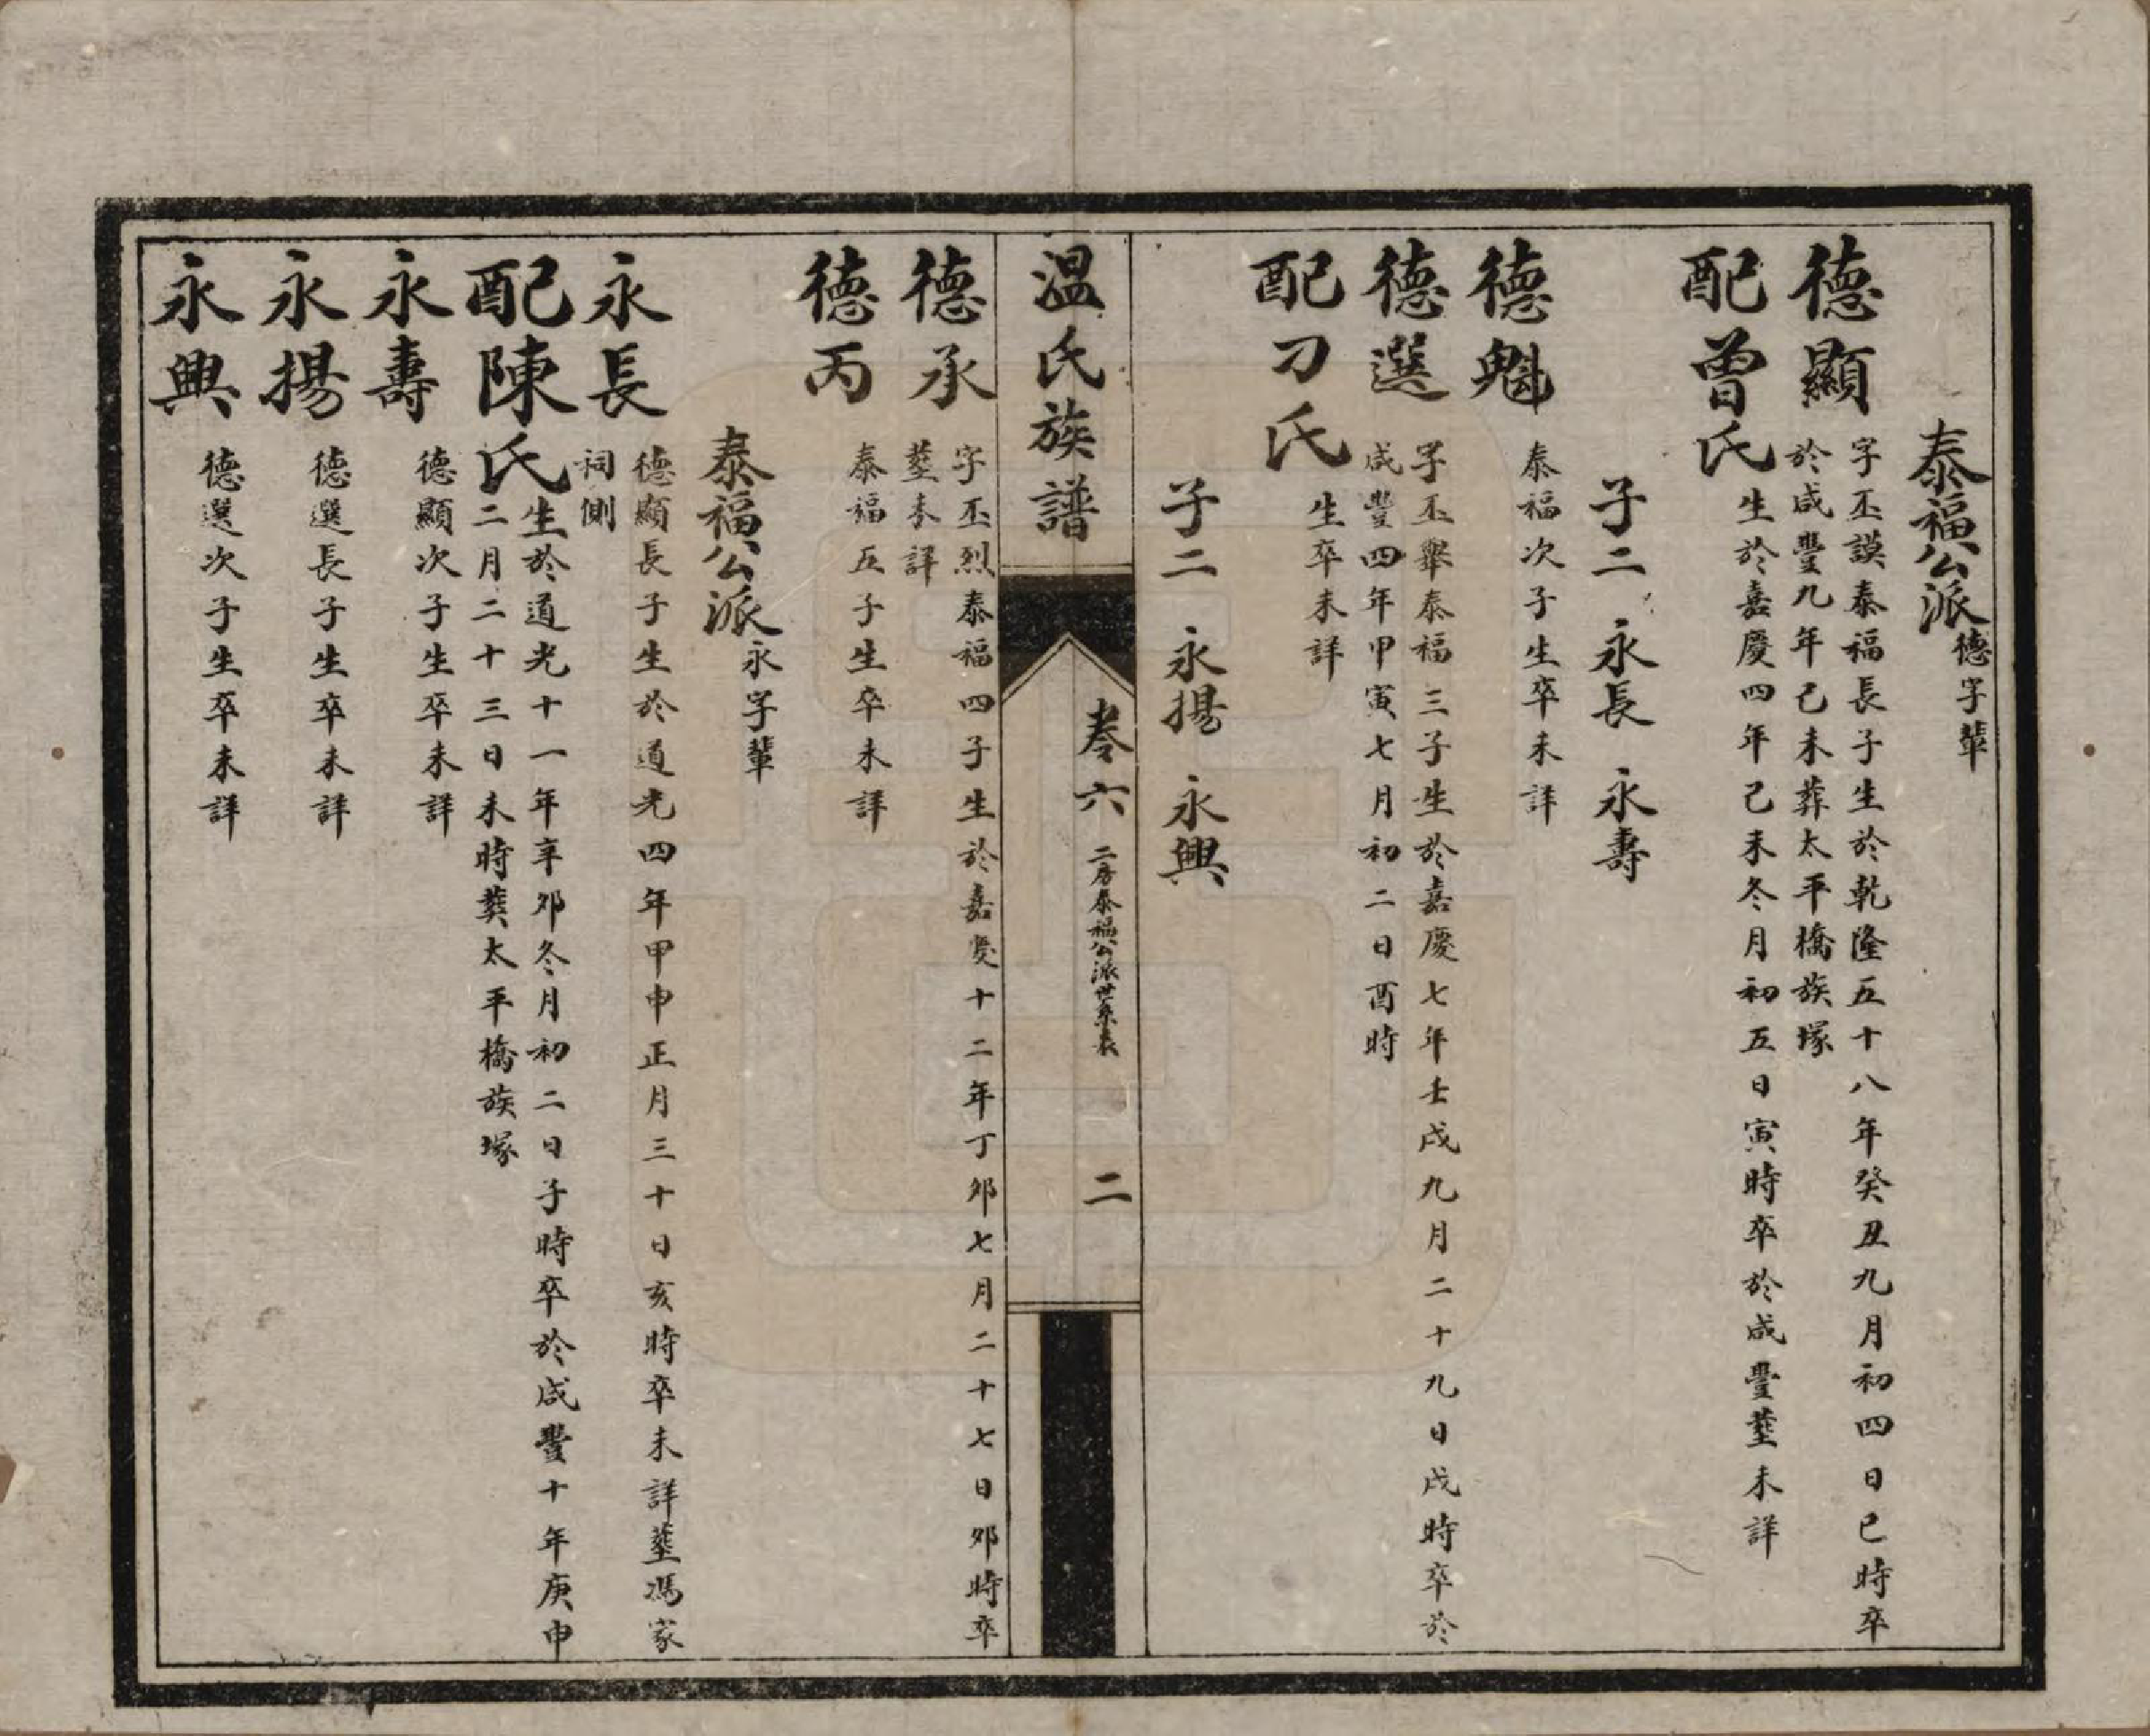 泰福公派德字輩
德顯
字丕謨泰福長子生於乾隆五十八年癸丑九月初四日巳時卒
於咸豐九年己未葬太平橋族塚
配曾氏
生於嘉慶四年己未冬月初五日寅時卒於咸豐塟未詳
子二 永長 永壽
德魁
泰福次子生卒未詳
德選
字丕舉泰福三子生於嘉慶七年壬戌九月二十九日戌時卒於
咸豐四年甲寅七月初二日酉時
配刁氏
生卒未詳
子二 永揚 永興
温氏族譜
卷六
二房泰福公派世系表
二
德承
字丕烈泰福四子生於嘉慶十二年丁卯七月二十七日卯時卒
塟未詳
德丙
泰福五子生卒未詳
泰福公派永字輩
永長
德顯長子生於道光四年甲申正月三十日亥時卒未詳塟馮家
祠側
配陳氏
生於道光十一年辛卯冬月初二日子時卒於咸豐十年庚申
二月二十三日未時葬太平橋族塚
永壽
德顯次子生卒未詳
永揚
德選長子生卒未詳
永興
德選次子生卒未詳